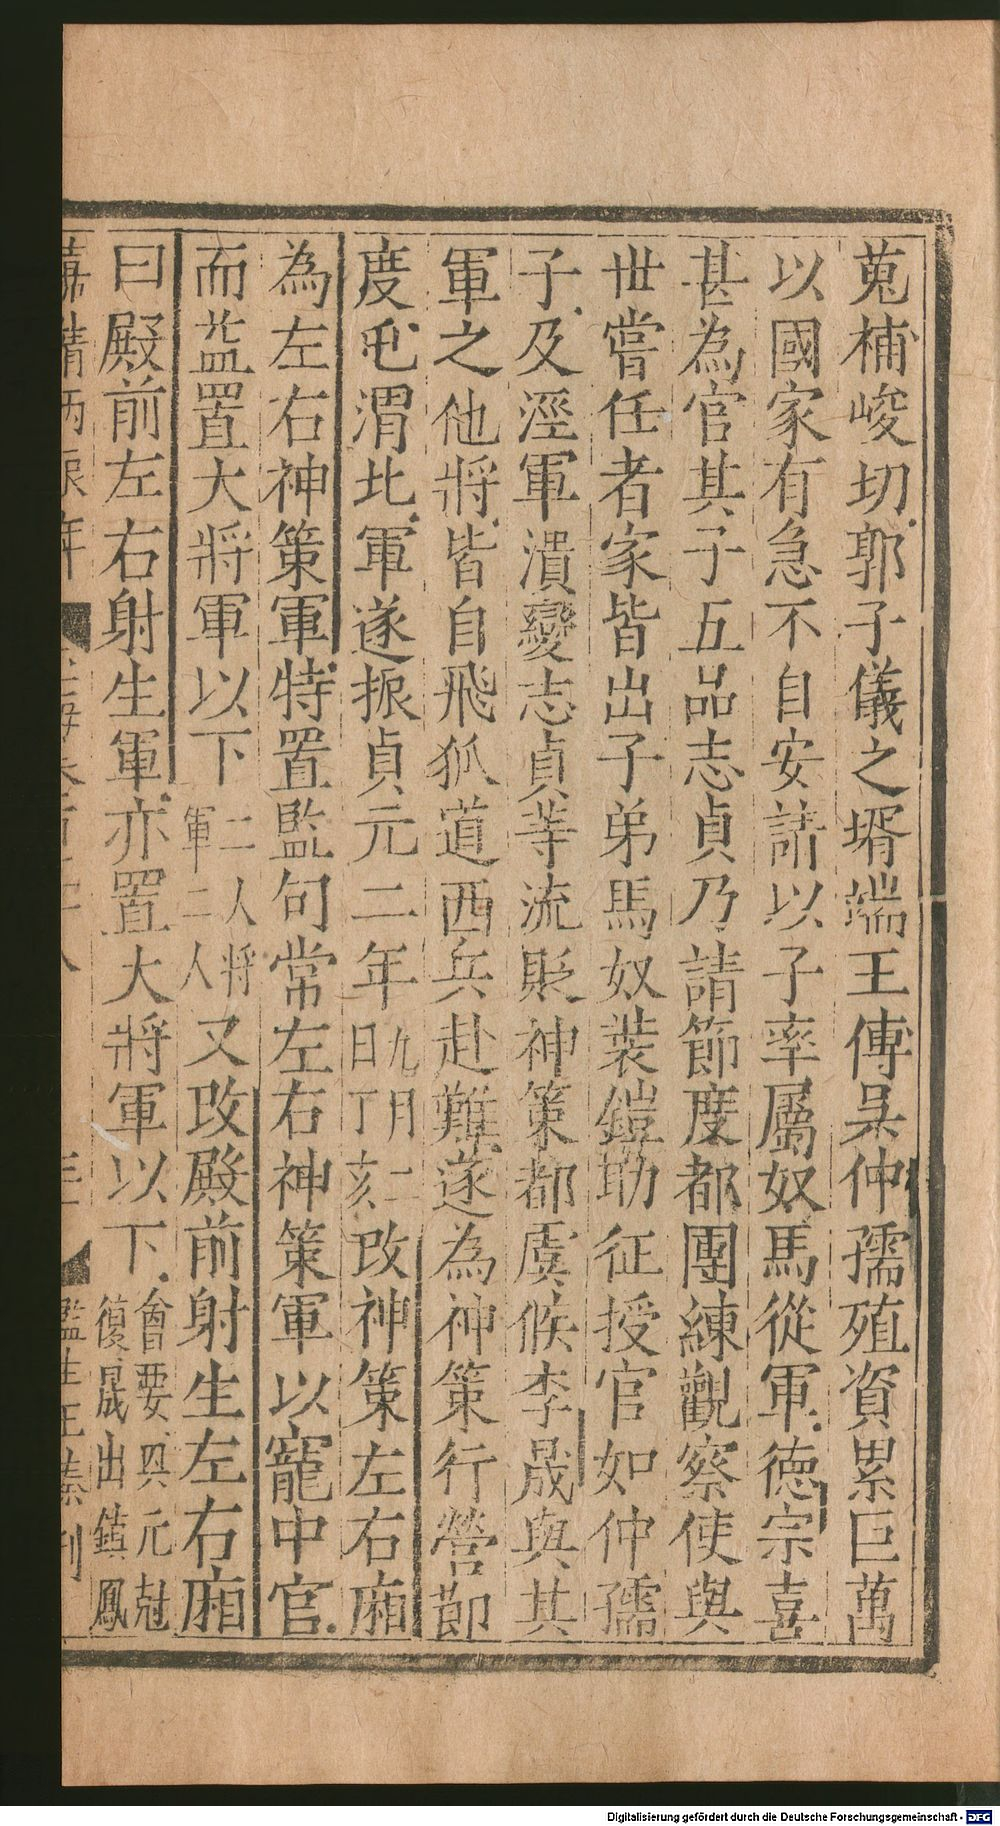 蒐補峻切郭子儀之壻端王傅吴仲孺殖資累巨萬
以國家有急不自安請以子率屬奴馬從軍德宗喜
甚為官其子五品志貞乃請節度都團練觀察使與
世嘗任者家皆出子弟馬奴裝鎧助征授官如仲孺
子及涇軍潰變志貞等流貶神策都虞候李晟與其
軍之他將皆自飛狐道西兵赴難遂為神策行營節
度屯渭北軍遂振貞元二年九月二日丁亥改神策左右廂
為左右神策軍特置監句常左右神策軍以寵中官
而益置大將軍以下二人將軍二人又改殿前射生左右廂
曰殿前左右射生軍亦置大將軍以下會要興元尅復晟出鎮鳳
嘉靖丙辰年
監生王蓁刊
Digitalisierung gefördert durch die Deutsche Forschungsgemeinschaft - DFG